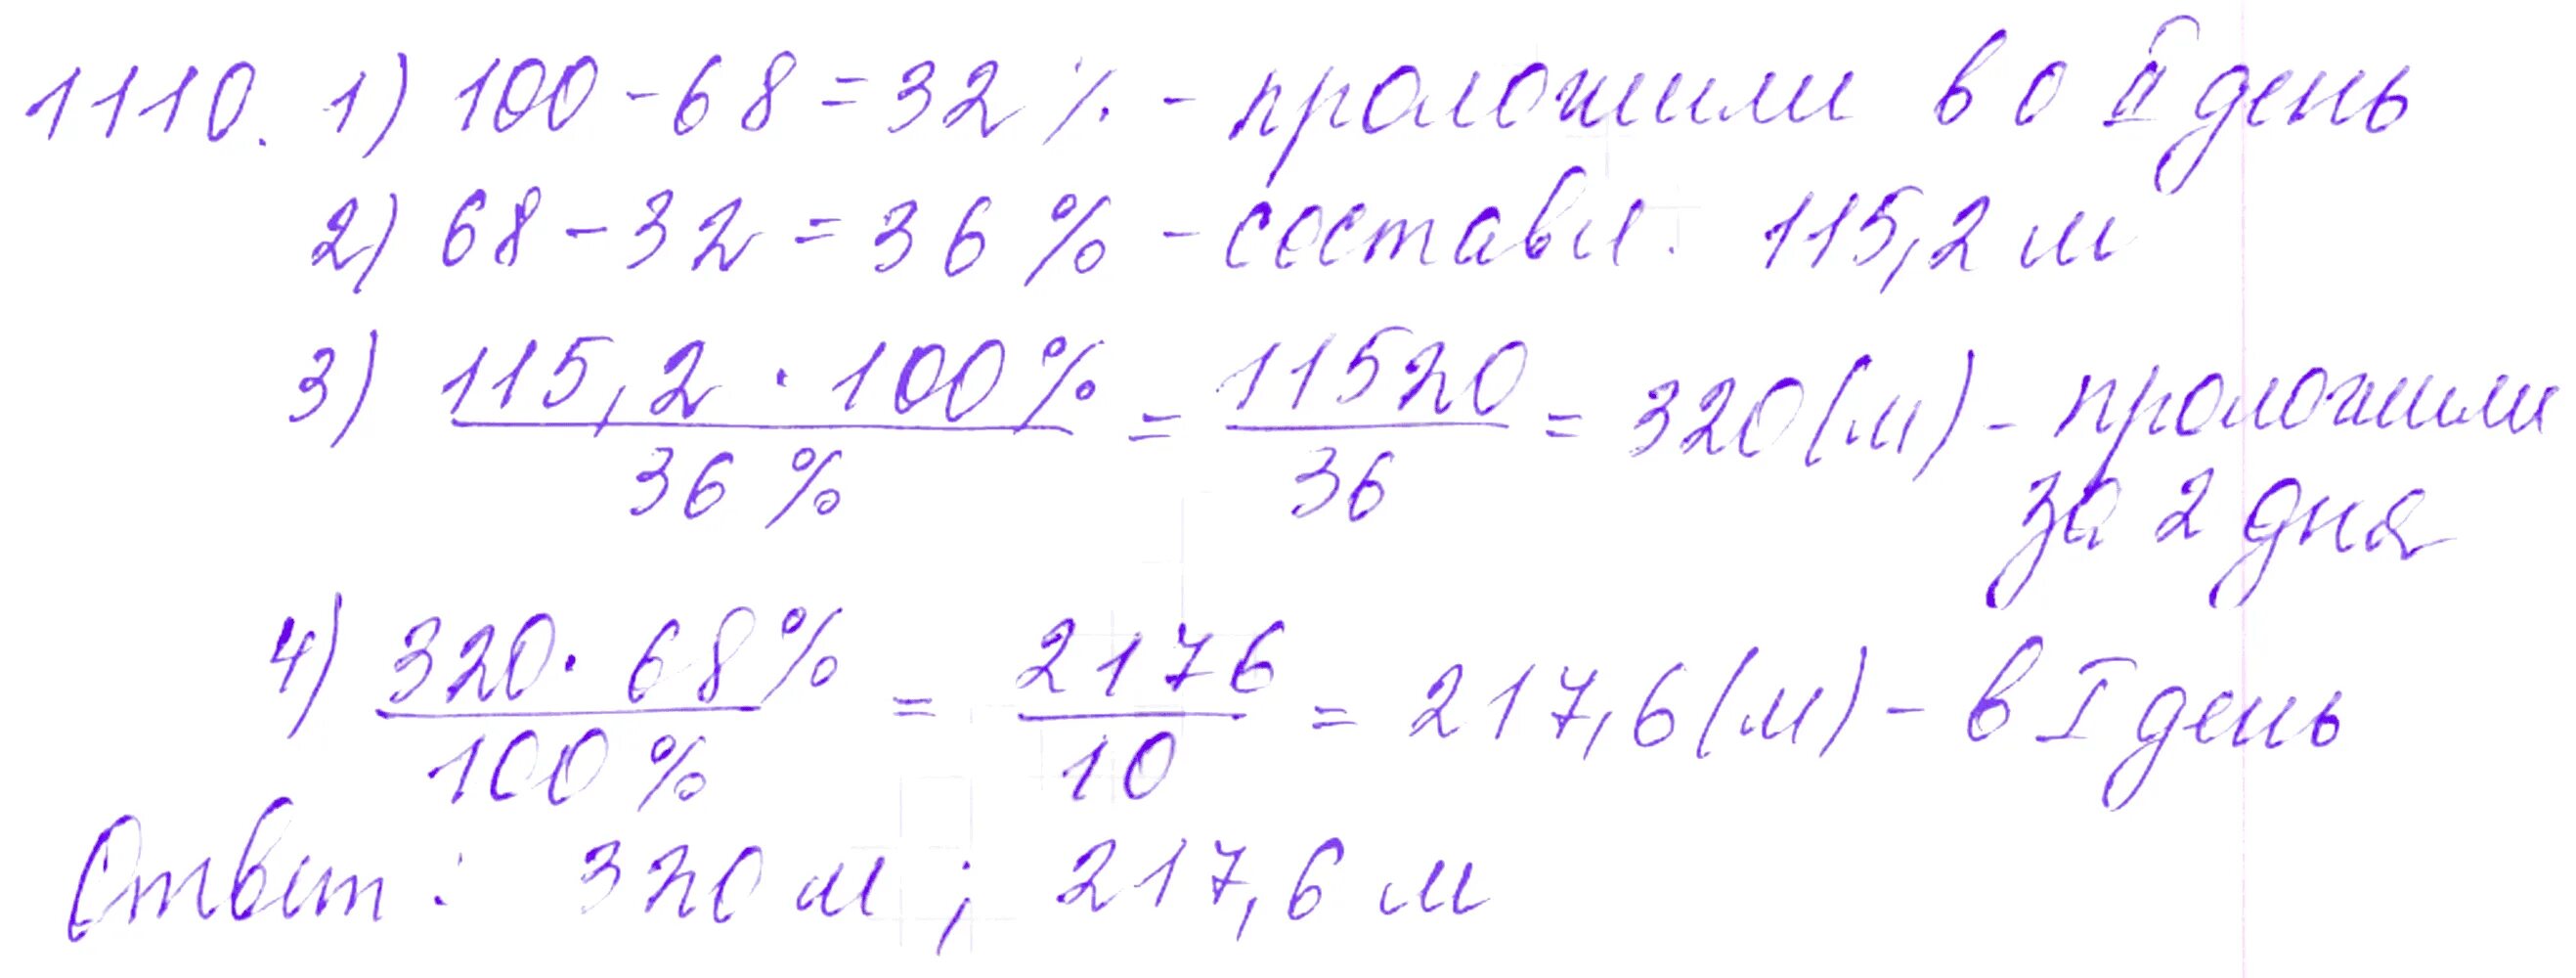 1110. 1) 100 - 68 = 32 % - проложили во II день
2) 68 - 32 = 36 % - составл. 115,2 м
3) 115,2 · 100 % / 36 % = 11520 / 36 = 320 (м) - проложили
за 2 дня
4) 320 · 68 % / 100 % = 2176 / 10 = 217,6 (м) - в I день
Ответ: 320 м ; 217,6 м